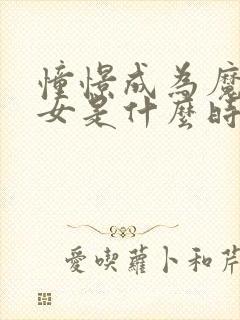 憧憬成為魔
女是什麼時
愛喫蘿卜和芹